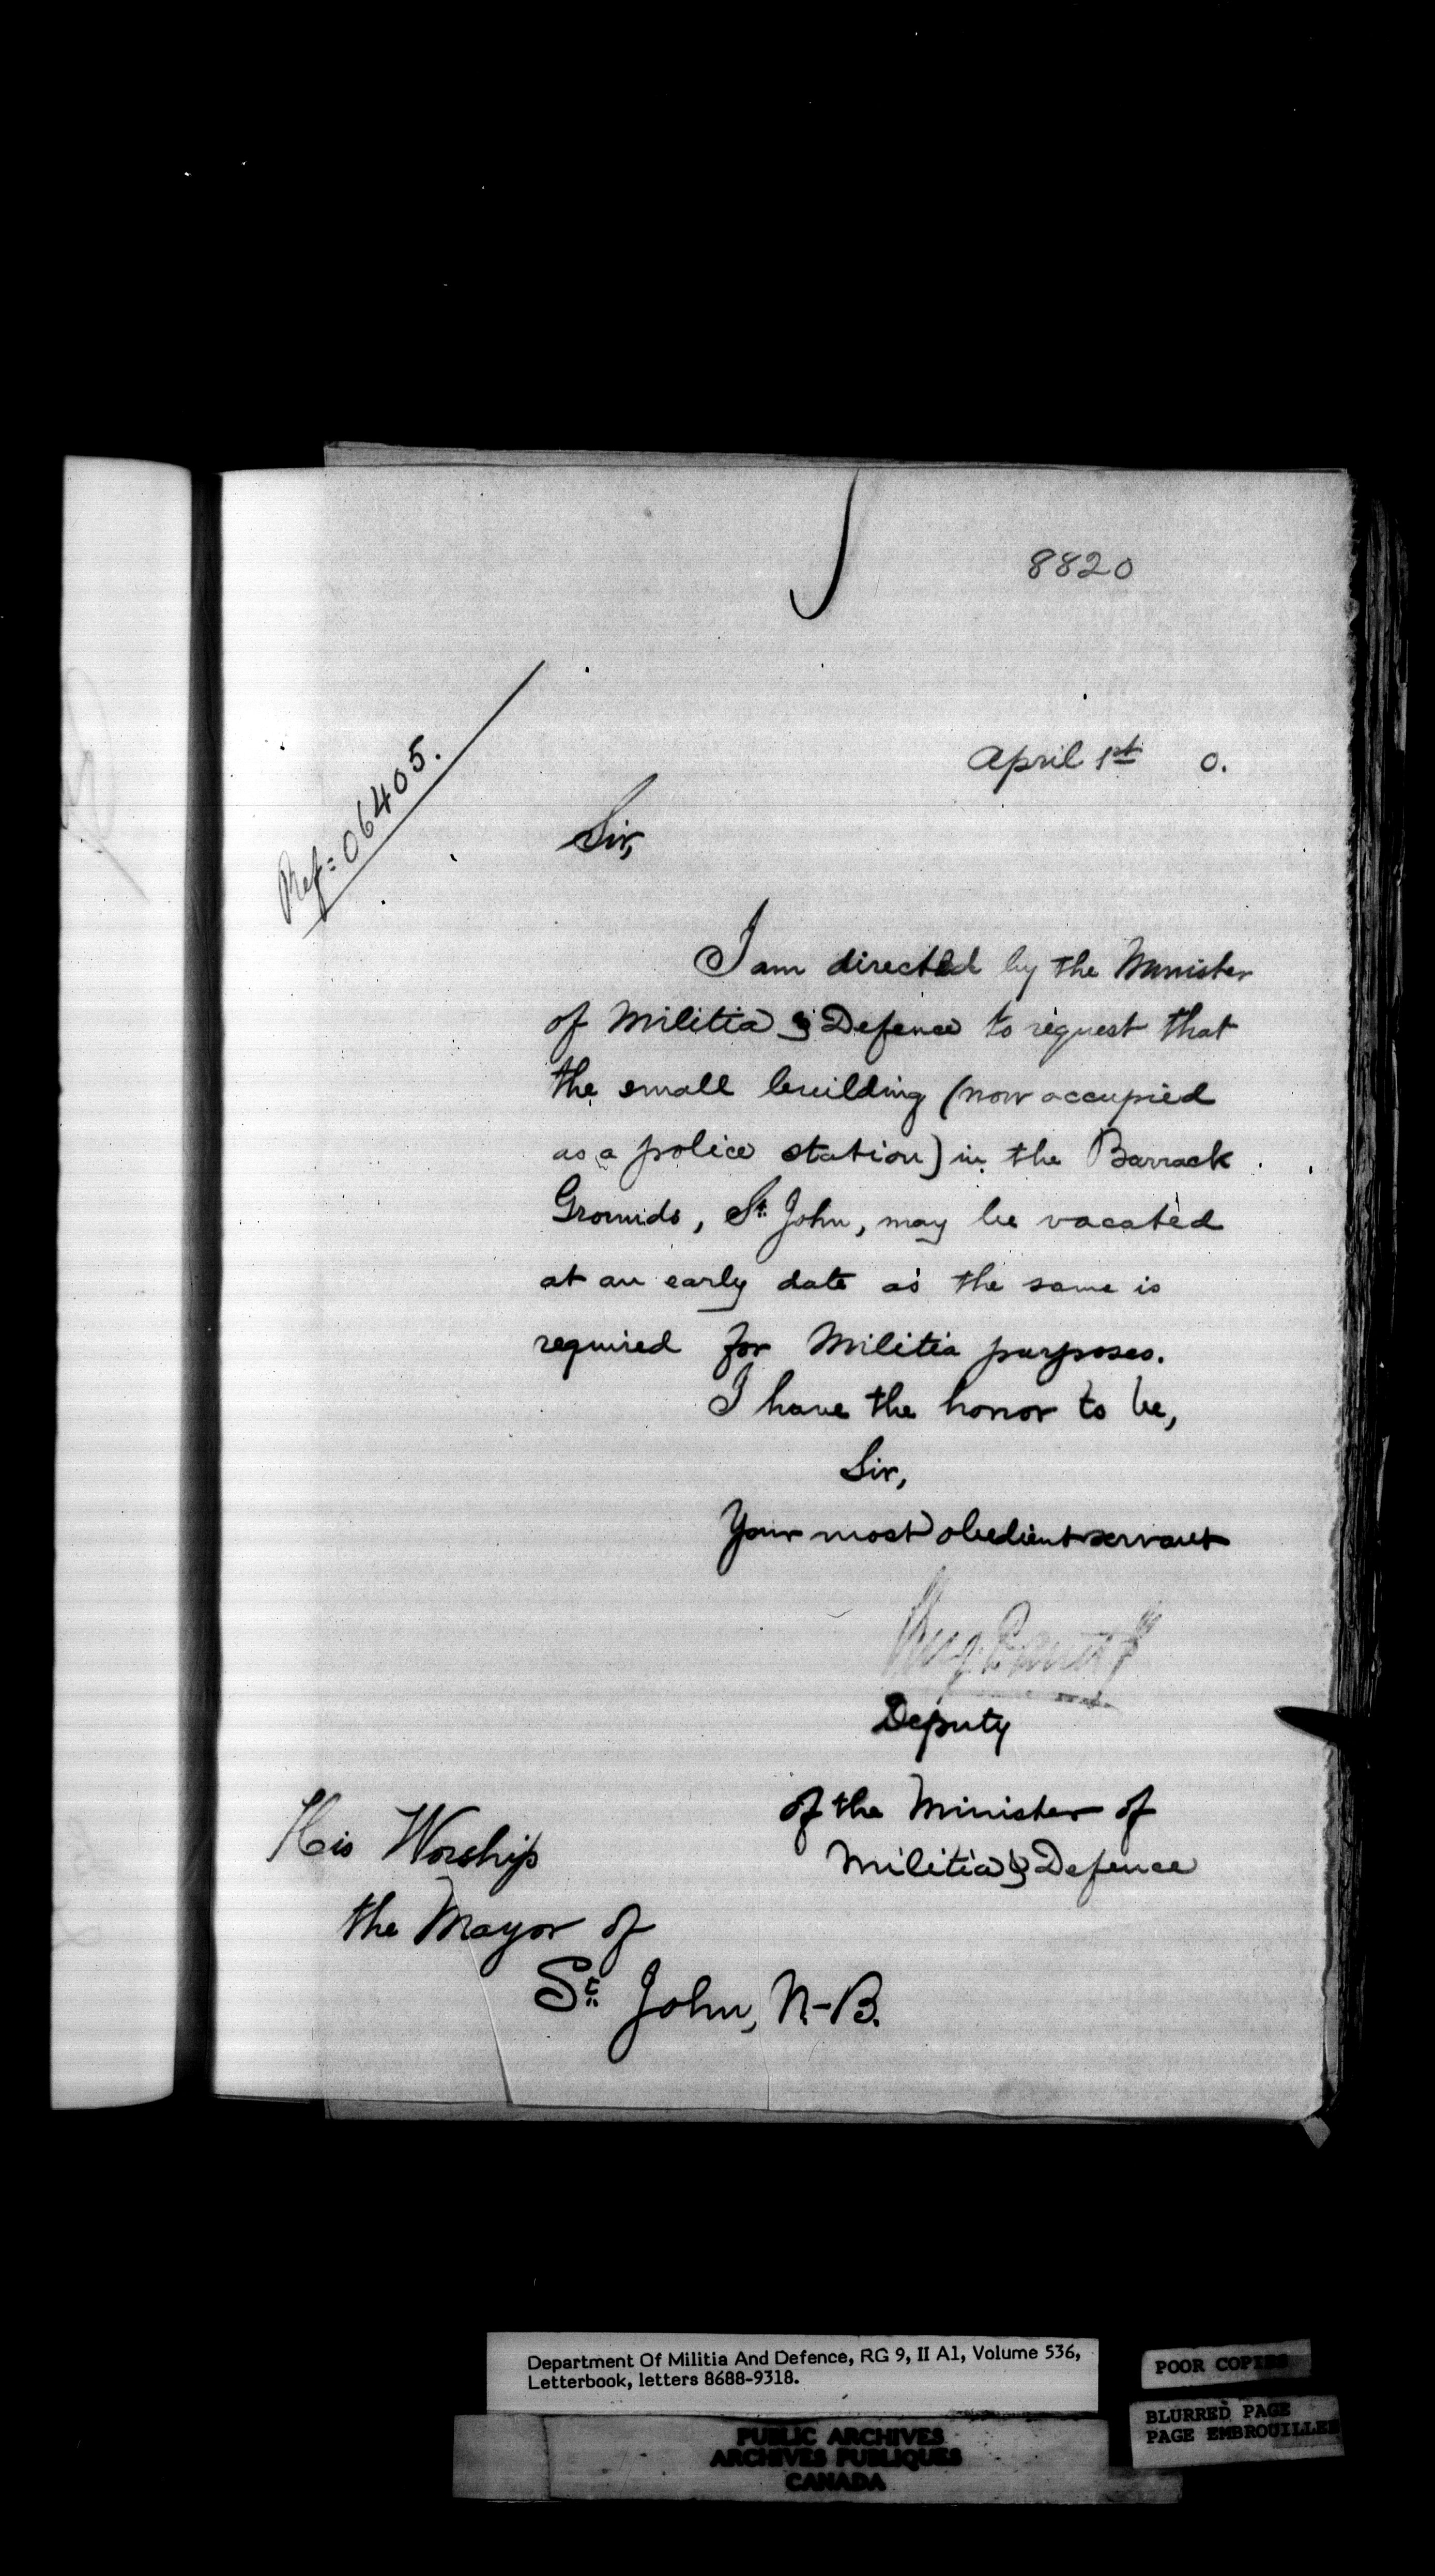 8820
Ref: 06405.
April 1st 0.
Sir,
I am directed by the Minister
of Militia & Defence to request that
the small building (now occupied
as a police station) in the Barrack
Grounds, St. John, may be vacated
at an early date as the same is
required for Militia purposes.
I have the honor to be,
Sir,
Your most obedient servant
Deputy
of the Minister of
Militia & Defence
His Worship
the Mayor of
St. John, N.-B.
Department Of Militia And Defence, RG 9, II A1, Volume 536,
Letterbook, letters 8688-9318.
POOR COPIES
BLURRED PAGE
PAGE EMBROUILLEE
PUBLIC ARCHIVES
ARCHIVES PUBLIQUES
CANADA